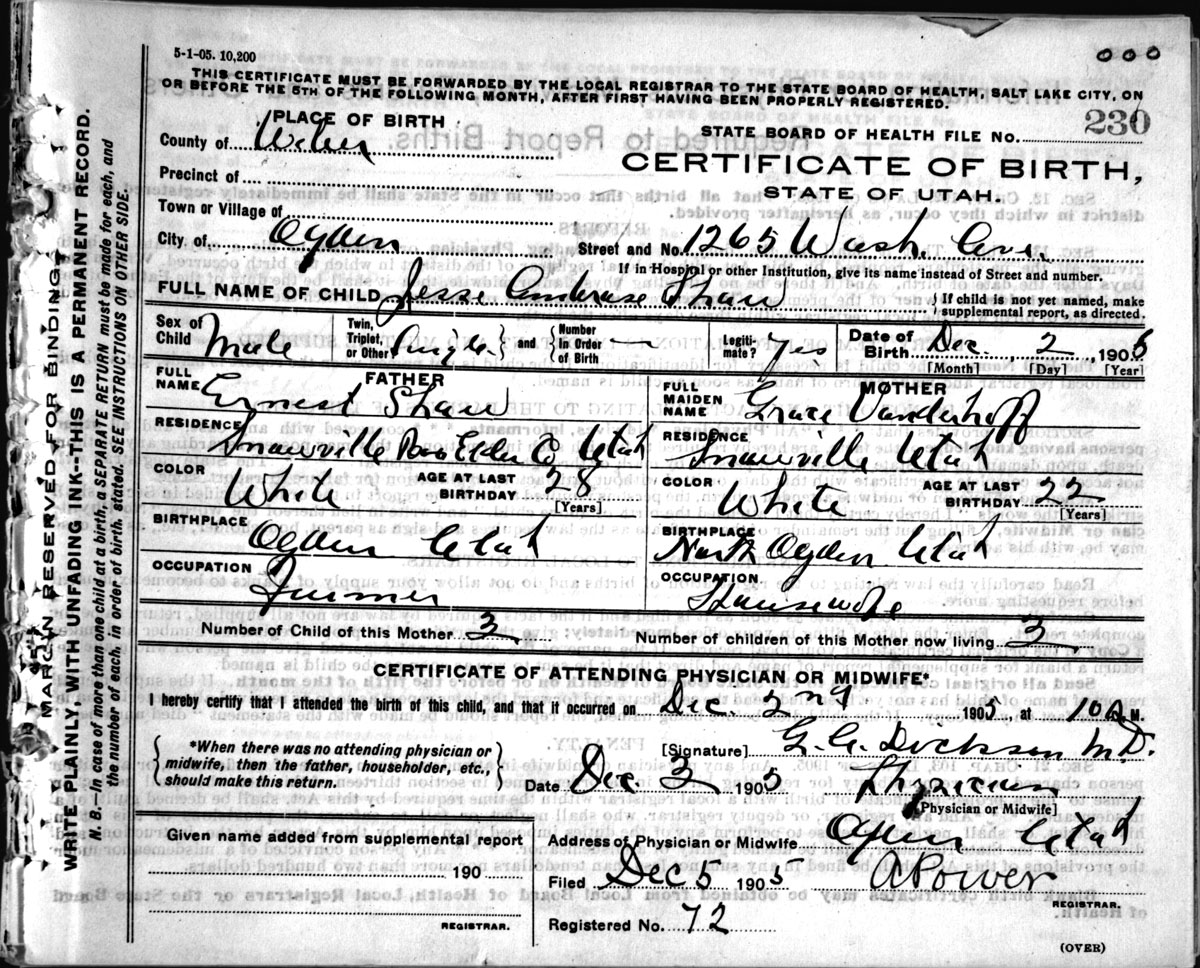 5-1-05. 10,200
000
THIS CERTIFICATE MUST BE FORWARDED BY THE LOCAL REGISTRAR TO THE STATE BOARD OF HEALTH, SALT LAKE CITY, ON
OR BEFORE THE 5TH OF THE FOLLOWING MONTH, AFTER FIRST HAVING BEEN PROPERLY REGISTERED.
PLACE OF BIRTH
STATE BOARD OF HEALTH FILE No. 230
County of Weber
CERTIFICATE OF BIRTH,
Precinct of
STATE OF UTAH.
Town or Village of
City of Ogden Street and No. 1265 Wash. Ave.
If in Hospital or other Institution, give its name instead of Street and number.
FULL NAME OF CHILD Jesse Ambrose Shaw
If child is not yet named, make
supplemental report, as directed.
Sex of Child Male
Twin, Triplet, or Other Single and Number in Order of Birth
Legitimate? Yes
Date of Birth Dec. 2, 1905
[Month] [Day] [Year]
FATHER
FULL NAME Ernest Shaw
RESIDENCE Snowville Box Elder Co, Utah
COLOR White AGE AT LAST BIRTHDAY 28
[Years]
BIRTHPLACE Ogden Utah
OCCUPATION Farmer
MOTHER
FULL MAIDEN NAME Grace Vanderhoff
RESIDENCE Snowville Utah
COLOR White AGE AT LAST BIRTHDAY 22
[Years]
BIRTHPLACE North Ogden Utah
OCCUPATION Housewife
Number of Child of this Mother 3 Number of children of this Mother now living 3
CERTIFICATE OF ATTENDING PHYSICIAN OR MIDWIFE*
I hereby certify that I attended the birth of this child, and that it occurred on Dec. 2nd 1905, at 10 A M.
*When there was no attending physician or
midwife, then the father, householder, etc.,
should make this return.
[Signature] Dickson M.D.
Date Dec. 3 1905 Physician
[Physician or Midwife]
Given name added from supplemental report
190
REGISTRAR.
Address of Physician or Midwife Ogden Utah
Filed Dec 5 1905 A Power
REGISTRAR.
Registered No. 72
(OVER)
MARGIN RESERVED FOR BINDING
WRITE PLAINLY, WITH UNFADING INK--THIS IS A PERMANENT RECORD.
N. B.—In case of more than one child at a birth, a SEPARATE RETURN must be made for each, and
the number of each, in order of birth, stated. SEE INSTRUCTIONS ON OTHER SIDE.